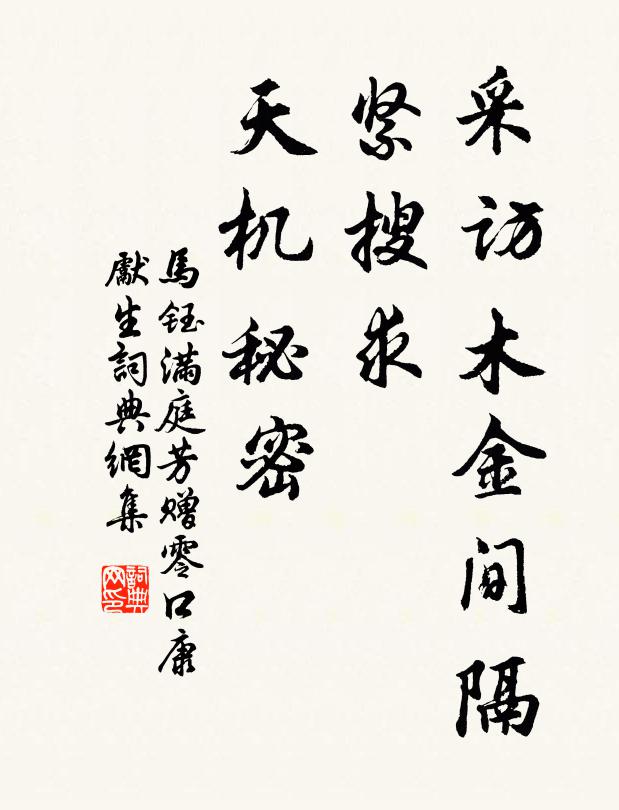 采访木金间隔
紧搜求
天机秘密
馬鈺滿庭芳赠零口康
獻生詞典網集
詞典
网印